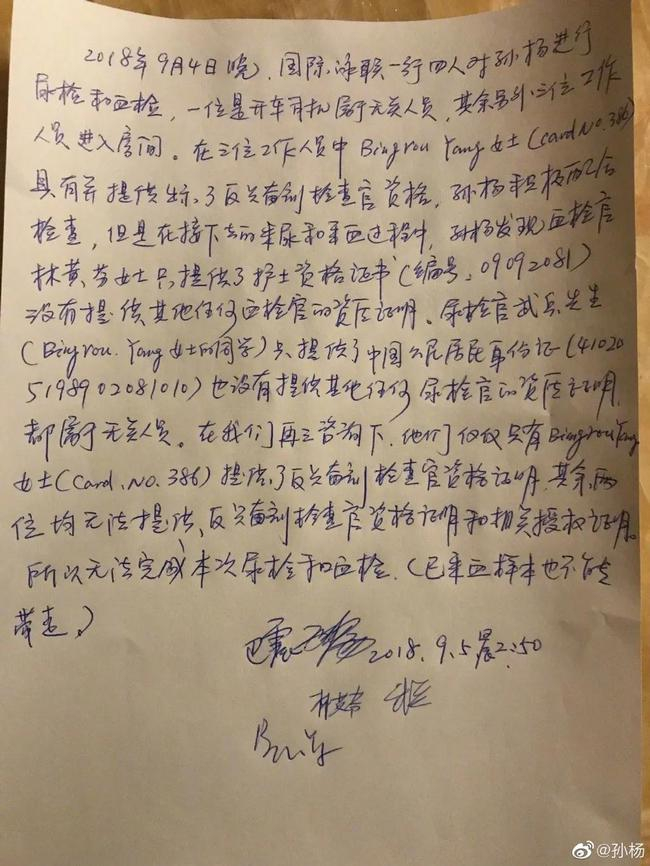 2018年9月4日晚,国际泳联一行四人对孙杨进行
尿检和血检,一位是开车司机属于无关人员,其余另外三位工作
人员进入房间。在三位工作人员中Bingrou Yang女士(card No.386)
具有并提供出示了反兴奋剂检查官资格,孙杨积极配合
检查,但是在接下去的采尿和采血过程中,孙杨发现血检官
林黄芬女士只提供了护士资格证书(编号:09092081)
没有提供其他任何血检官的资质证明。尿检官武兵先生
(Bingrou.Yang女士的同学)只提供了中国公民居民身份证(41020
5198902081010)也没有提供其他任何尿检官的资质证明,
都属于无关人员。在我们再三咨询下,他们仅仅只有Bingrou Yang
女士(Card.No.386)提供了反兴奋剂检查官资格证明,其余两
位均无法提供反兴奋剂检查官资格证明和相关授权证明。
所以无法完成本次尿检和血检.(已采血样本也不能
带走)
2018.9.5晨2:50
@孙杨